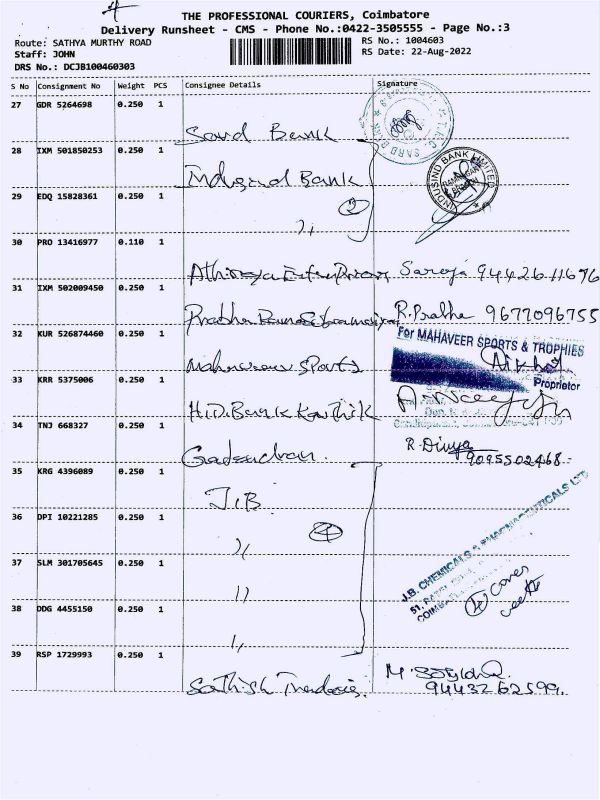 THE PROFESSIONAL COURIERS, Coimbatore
Delivery Runsheet - CMS - Phone No.:0422-3505555 - Page No.:3
Route: SATHYA MURTHY ROAD
RS No.: 1004603
Staff: JOHN
RS Date: 22-Aug-2022
DRS No.: DCJB100460303
S No Consignment No Weight PCS Consignee Details Signature
27 GDR 5264698 0.250 1
Sard Bank
28 IXM 501850253 0.250 1
Bank
INDUSIND BANK LIMITED
29 EDQ 15828361 0.250 1
30 PRO 13416977 0.110 1
Saroja 9442611676
31 IXM 502009450 0.250 1
Prabha R.Prabha 9677096755
32 KUR 526874460 0.250 1
For MAHAVEER SPORTS & TROPHIES
Proprietor
Sports
33 KRR 5375006 0.250 1
Bank Karthik
34 TNJ 668327 0.250 1
R.Divya
9095502468
35 KRG 4396089 0.250 1
J.B.
36 DPI 10221285 0.250 1
4
J.B. CHEMICALS & PHARMACEUTICALS LTD
37 SLM 301705645 0.250 1
11
4 covers
38 DDG 4455150 0.250 1
39 RSP 1729993 0.250 1
Sathish
9443262599.